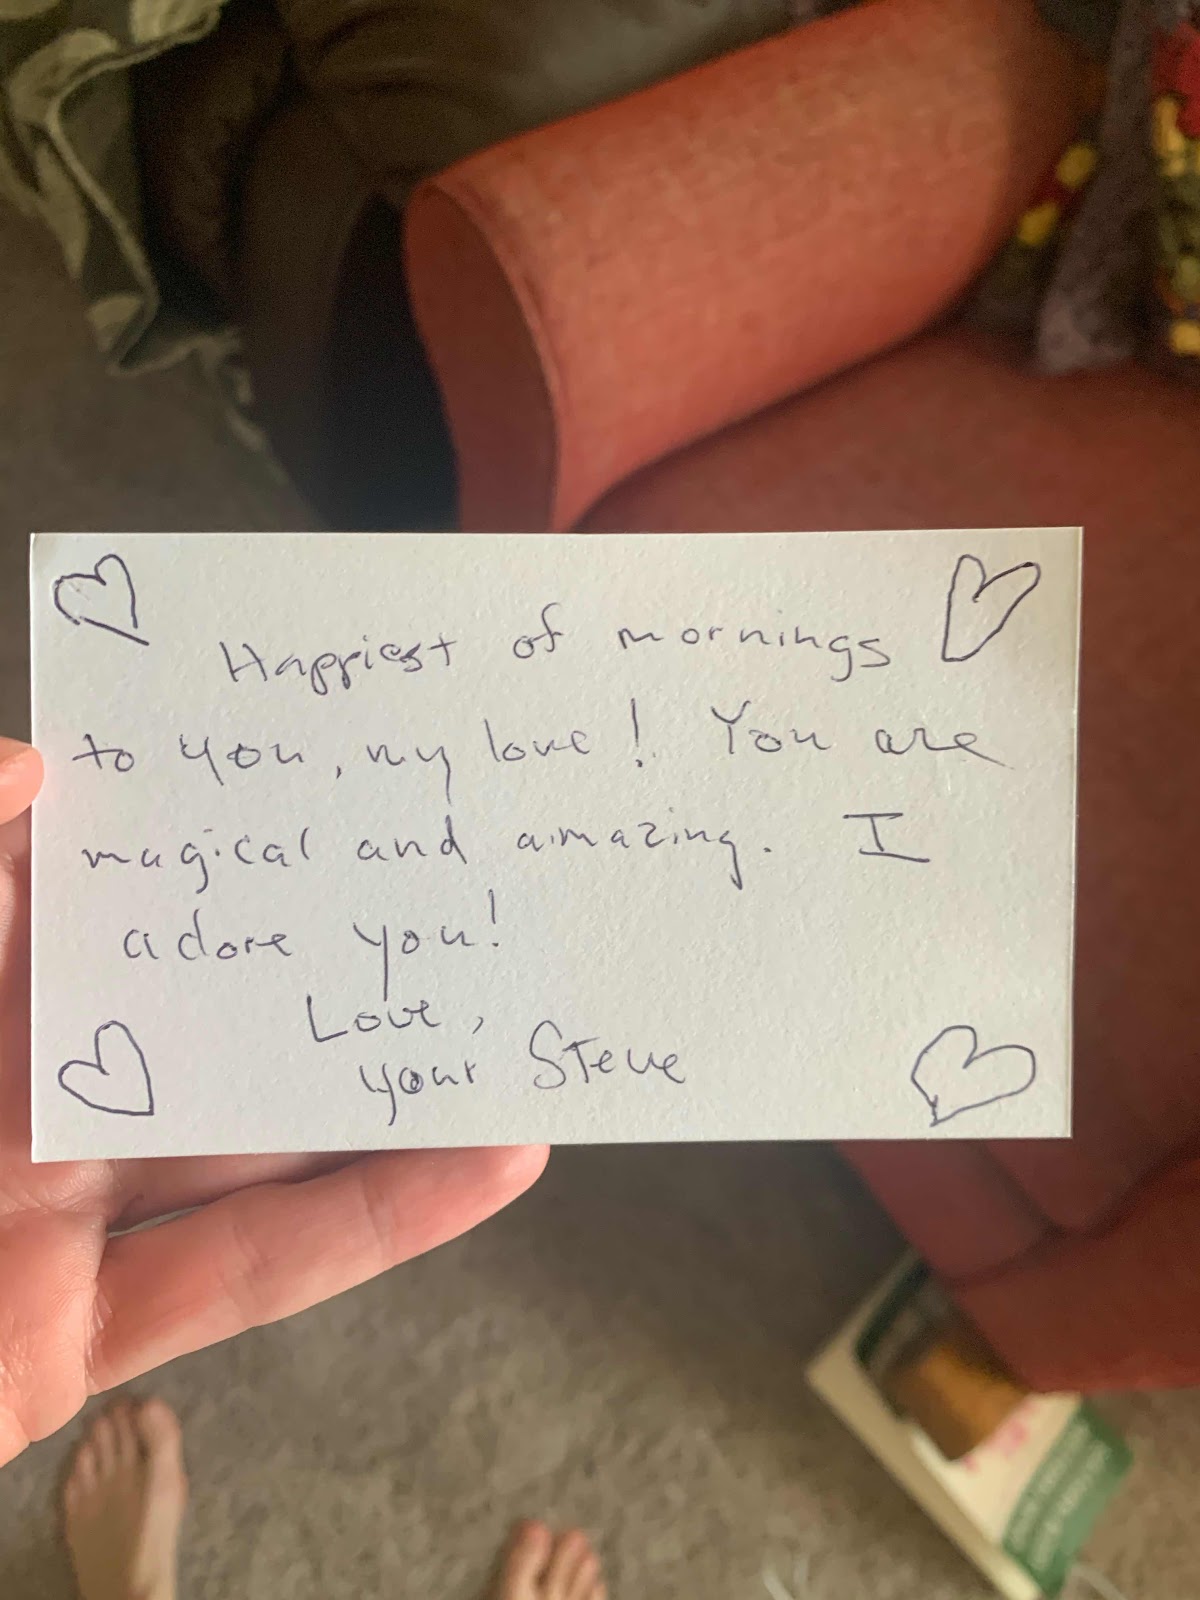 Happiest of mornings
to you, my love! You are
magical and amazing. I
adore you!
Love,
your Steve